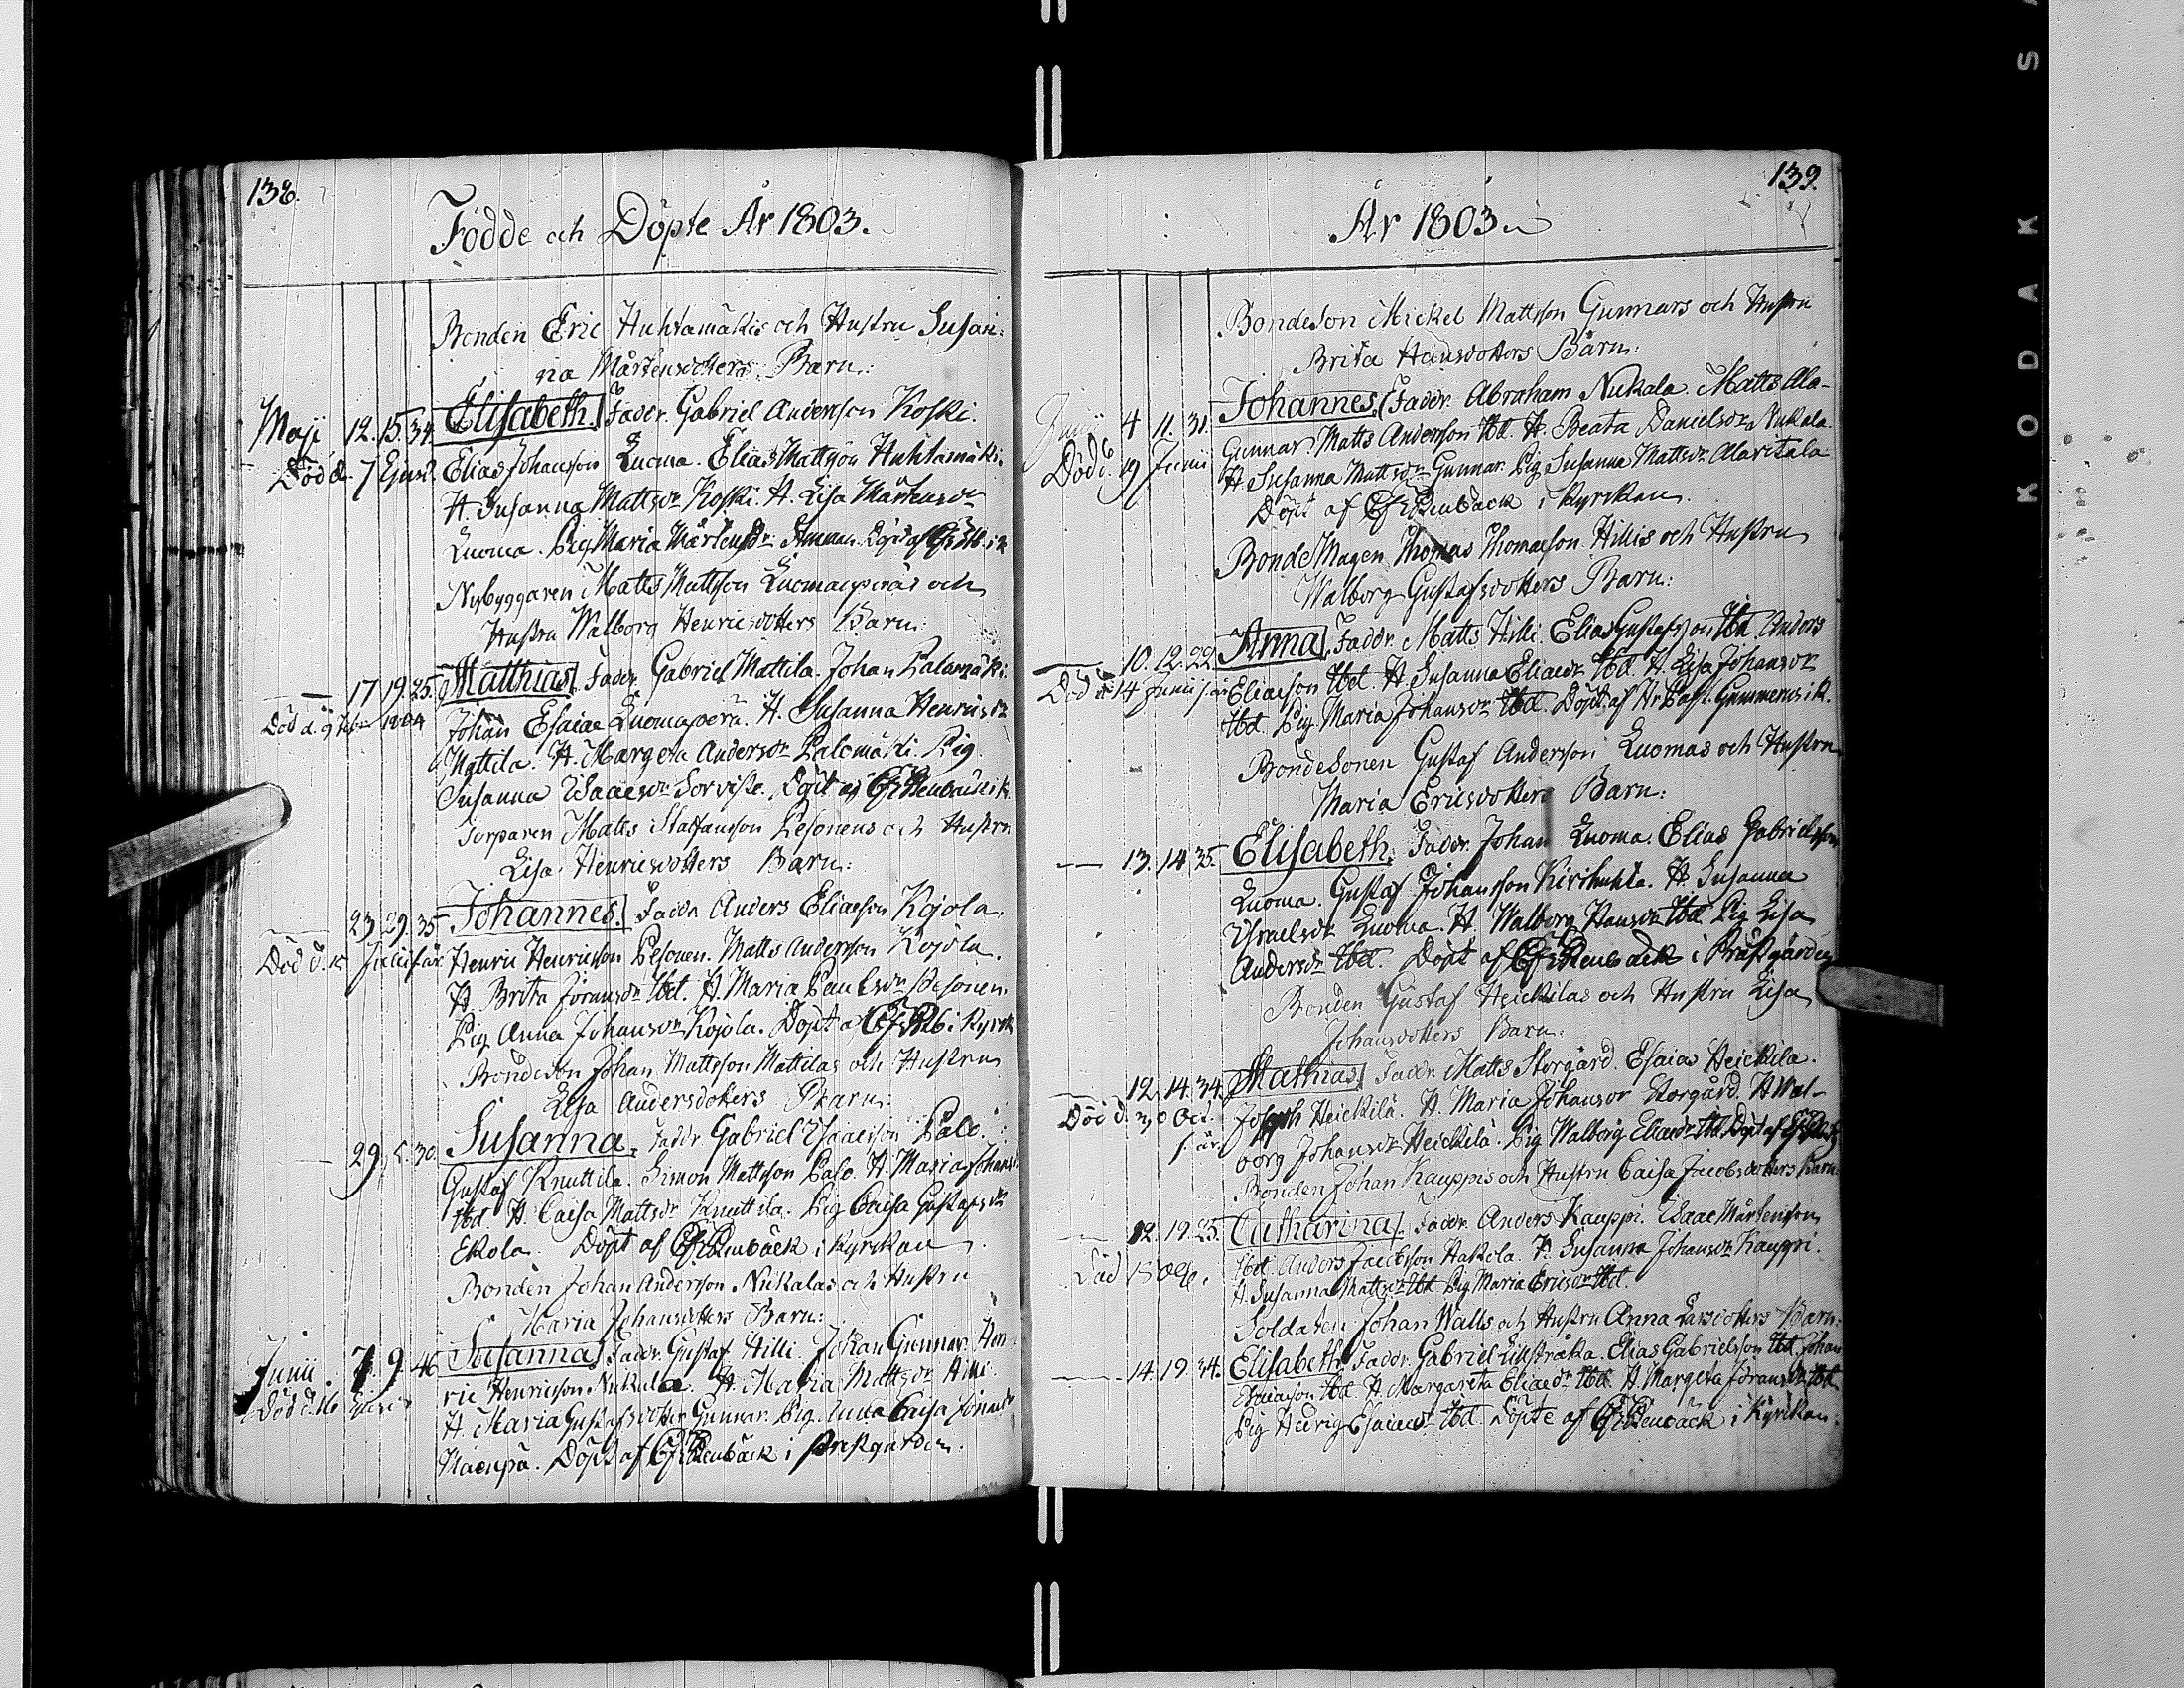 138.
Födde och Döpte År 1803.
Bonden Eric Huhtamäkis och Hustru Susan:
na Mårtensdotters Barn:
Maji 12. 15. 34. Elisabeth. Faddr. Gabriel Andersson Koski.
Död d. 7 Elias Johansson Luoma. Elias Mattsson Huhtamäki.
H. Susanna Mattsdr Koski. H. Lisa Mårtensdr
Luoma. Pig Maria Mårtensdr
Nybyggaren Matts Mattsson Luomanperäs och
Hustru Walborg Henricsdotters Barn:
— 17 19. 25. Matthias. Faddr. Gabriel Mattila. Johan Palomäki.
Död d. 9 1804 Johan Esaiae Luomaperä. H. Susanna Henricsdr
Mattila. H. Margeta Andersdr Palomäki. Pig
Susanna Isaacsdr Sorviste. Döpt af
Torparen Matts Staffansson Pesonens och Hustru
Lisa Henricsdotters Barn:
— 23. 29. 35 Johannes. Faddr Anders Eliaeson Kojola.
Död d. 15 Julii s. år Henric Henricsson Pesonen. Matts Andersson Kojola.
H Brita Johansdr Ibd. H. Maria Paulsdr Pesonen.
Pig Anna Johansdr Kojola. Döpt af i Kyrk
Bondeson Johan Mattsson Mattilas och Hustru
Lisa Andersdotters Barn:
— 29. 5. 30. Susanna. Faddr Gabriel Isaacsson Palo.
Gustaf Knuttila. Simon Mattsson Palo. H. Maria Johans
Ibd. H. Caisa Mattsdr Knuttila. Pig Caisa Gustafsdr
Ekola. Döpt af i Kyrckan
Bonden Johan Andersson Nukalas och Hustru
Maria Johansdotters Barn:
Junii. 7. 9. 46. Susanna. Faddr. Gustaf Hilli. Johan Gunnar. Hen
Död d. 16 ric Henricsson Nukala. H. Maria Mattsdr Hilli.
H. Maria Gustafsdotter Gunnar. Pig. Anna Caisa Johansdr
Döpt af i Prestgården.
139.
År 1803.
Bondeson Mickel Mattsson Gunnars och Hustru
Brita Hansdotters Barn:
Junii 4 11. 31. Johannes. Faddr. Abraham Nukala. Matts Ala-
Död d. 19 Junii Gunnar. Matts Andersson Ibd. H. Beata Danielsdr Nukala.
H. Susanna Mattsdr Gunnar. Pig Susanna Mattsdr Alaritala
Döpt af i Kyrckan.
BondeMagen Thomas Thomasson Hillis och Hustru
Walborg Gustafsdotters Barn:
— 10. 12. 22. Anna. Faddr. Matts Hilli. Elias Gustafsson Ibd. Anders
Död d. 14 Junii s. år Eliaeson Ibd. H. Susanna Eliaedr Ibd. H. Lisa Johansdr
Ibd. Pig Maria Johansdr Ibd. Döpt af Hr Past. Gummerus i K.
BondeSonen Gustaf Andersson Luomas och Hustru
Maria Ericsdotters Barn:
— 13. 14. 35. Elisabeth. Faddr. Johan Luoma. Elias Gabrielsson
Luoma. Gustaf Johansson Kirihuhta. H. Susanna
Israelsdr Luoma. H. Walborg Hansdr Ibd. Pig Lisa
Andersdr Ibd. Döpt af i Prästgården
Bonden Gustaf Heickilas och Hustru Lisa
Johansdotters Barn:
— 12. 14. 34. Mathias. Faddr. Matts Storgård. Esaias Heickila.
Död d. 30 Oct. Joseph Heickilä. H. Maria Johansdr Storgård. H Wal-
s. år borg Johansdr Heickilä. Pig Walborg Eliaedr Ibd. Döpt af
Bonden Johan Kauppis och Hustru Caisa Jacobsdotters Barn
— 12. 19. 25. Catharina. Faddr. Anders Kauppi. Isaac Mårtensson
Ibd. Anders Jacobsson Hakola. H. Susanna Johansdr Kauppi.
H. Susanna Mattsdr Ibd Pig Maria Ericsdr Ibd.
Soldaten Johan Walls och Hustru Anna Larsdotters Barn:
— 14. 19. 34. Elisabeth. Faddr. Gabriel Lillstråka. Elias Gabrielsson Ibd. Johan
Ibd. H. Margareta Eliaedr Ibd. H. Margeta Johansdr Ibd.
Pig Hedvig Esaiaedr Ibd. Döpte af i Kyrckan.
KODAK S